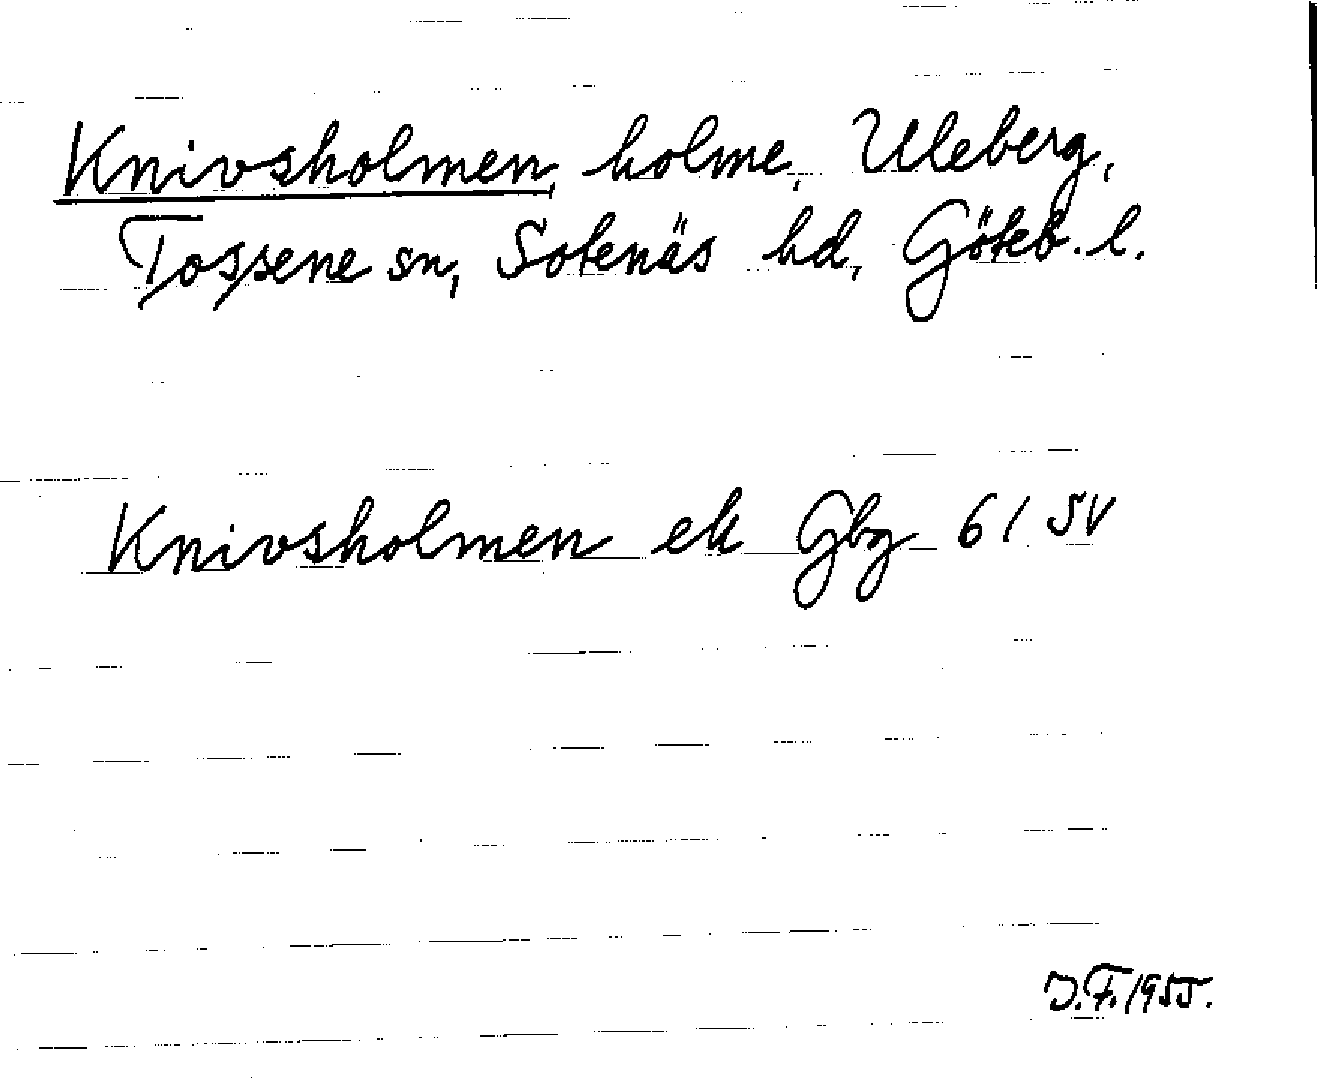 Knivsholmen, holme, Uleberg,
Tossene sn, Sotenäs hd, Göteb. l.
Knivsholmen ek Gbg 61 SV
J.F. 1955.